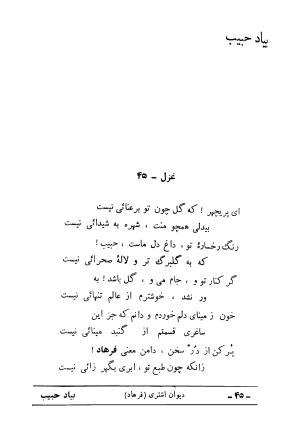 بیاد حبیب
غزل - ۴۵
ای پریچهر! که گل چون تو برعنائی نیست
بیدلی همچو منت ، شهره به شیدائی نیست
رنگ رخسارهٔ تو ، داغ دل ماست ، حبیب!
که به گلبرگ تر و لالهٔ صحرائی نیست
گر کنار تو و ، جام می و ، گل باشد! به
ور نشد ، خوشترم از عالم تنهائی نیست
خون ز مینای دلم خوردم و دانم که جز این
ساغری قسمتم از گنبد مینائی نیست
پر کن از در سخن ، دامن معنی فرهاد!
زانکه چون طبع تو ، ابری بگهر زائی نیست
- ۴۵ - دیوان اشتری (فرهاد) بیاد حبیب